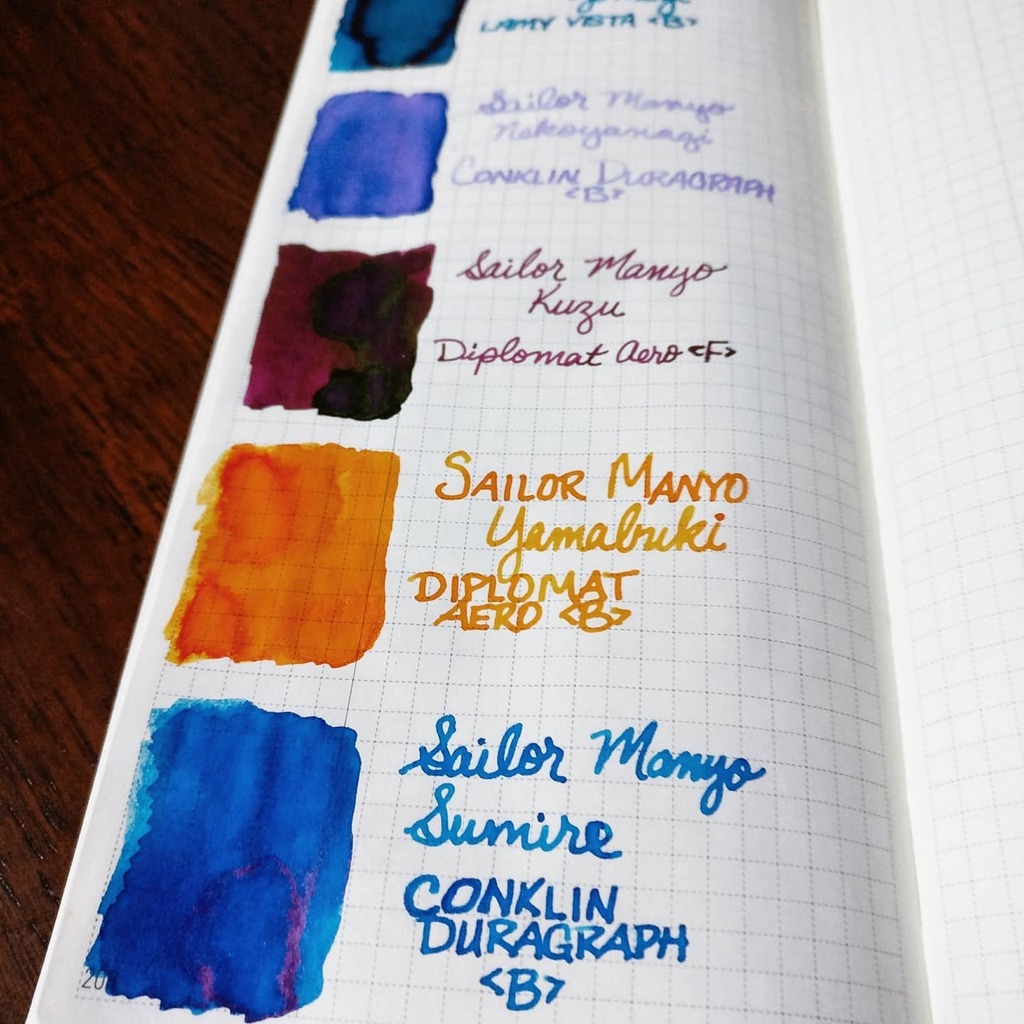 LAMY VISTA <B>
Sailor Manyo
Nekoyanagi
CONKLIN DURAGRAPH
<B>
Sailor Manyo
Kuzu
Diplomat Aero <F>
SAILOR MANYO
Yamabuki
DIPLOMAT
AERO <B>
Sailor Manyo
Sumire
CONKLIN
DURAGRAPH
<B>
20